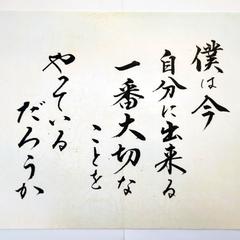 僕は今
自分に出来る
一番大切な
ことを
やっている
だろうか